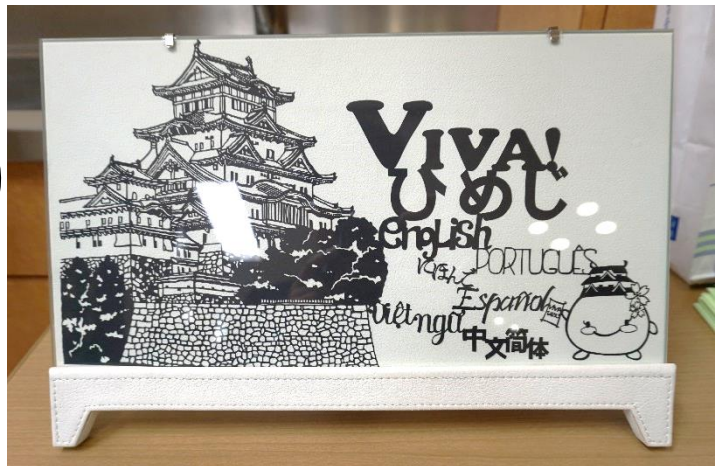 VIVA!
ひめじ
English
PORTUGUÊS
Español
Việt ngữ
中文简体